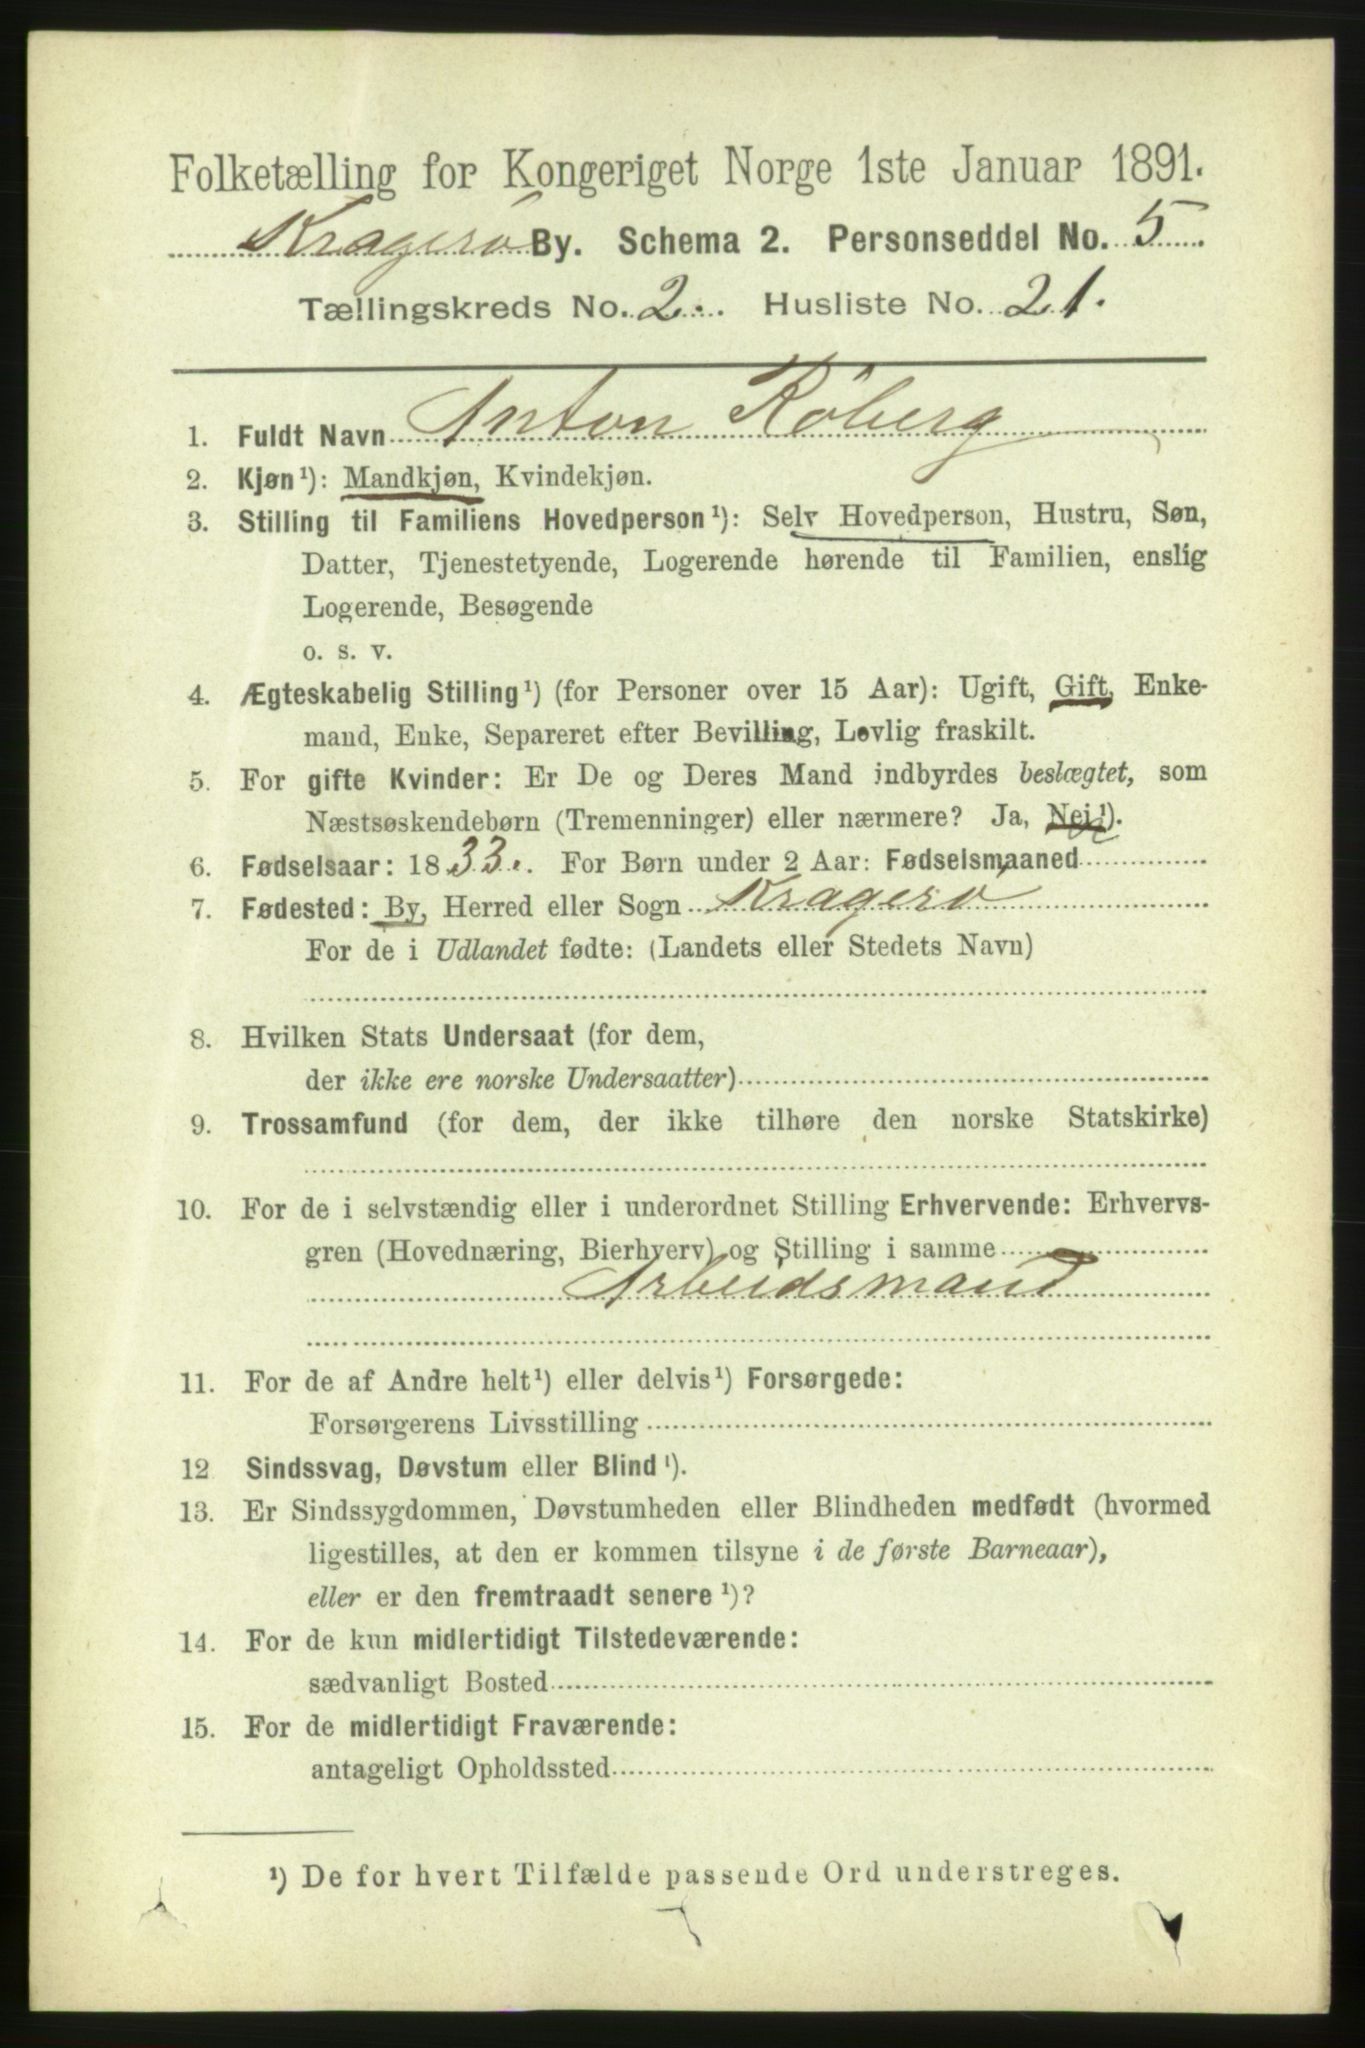 Folketælling for Kongeriget Norge 1ste Januar 1891.
Kragerø By. Schema 2. Personseddel No. 5
Tællingskreds No. 2. Husliste No. 21.
1. Fuldt Navn Anton Röberg
2. Kjøn¹): Mandkjøn, Kvindekjøn.
3. Stilling til Familiens Hovedperson¹): Selv Hovedperson, Hustru, Søn,
Datter, Tjenestetyende, Logerende hørende til Familien, enslig
Logerende, Besøgende
o. s. v.
4. Ægteskabelig Stilling¹) (for Personer over 15 Aar): Ugift, Gift, Enke-
mand, Enke, Separeret efter Bevilling, Lovlig fraskilt.
5. For gifte Kvinder: Er De og Deres Mand indbyrdes beslægtet, som
Næstsøskendebørn (Tremenninger) eller nærmere? Ja, Nei¹).
6. Fødselsaar: 1833. For Børn under 2 Aar: Fødselsmaaned
7. Fødested: By, Herred eller Sogn Kragerø
For de i Udlandet fødte: (Landets eller Stedets Navn)
8. Hvilken Stats Undersaat (for dem,
der ikke ere norske Undersaatter)
9. Trossamfund (for dem, der ikke tilhøre den norske Statskirke)
10. For de i selvstændig eller i underordnet Stilling Erhvervende: Erhvervs-
gren (Hovednæring, Bierhverv) og Stilling i samme
Arbeidsmand
11. For de af Andre helt¹) eller delvis¹) Forsørgede:
Forsørgerens Livsstilling
12 Sindssvag, Døvstum eller Blind¹).
13. Er Sindssygdommen, Døvstumheden eller Blindheden medfødt (hvormed
ligestilles, at den er kommen tilsyne i de første Barneaar),
eller er den fremtraadt senere¹)?
14. For de kun midlertidigt Tilstedeværende:
sædvanligt Bosted
15. For de midlertidigt Fraværende:
antageligt Opholdssted
¹) De for hvert Tilfælde passende Ord understreges.